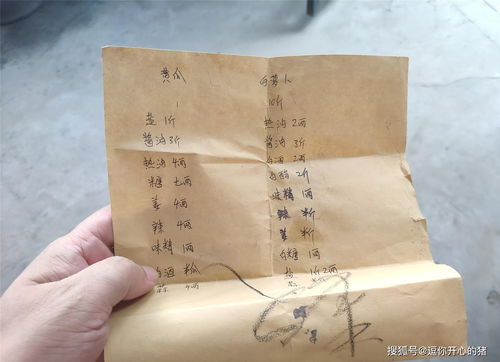 黄瓜
1
盐 1斤
酱油3斤
热油 4两
糖 七两
姜 4两
辣 4两
味精 1两
白酒 半瓜
蒜 4两
白萝卜
10斤
热油 2两
酱油 3斤
白酒 2两
白醋 2斤
味精 1两
辣 半斤
姜 半斤
白糖 1两
盐 1斤2两
搜狐号@逗你开心的猪